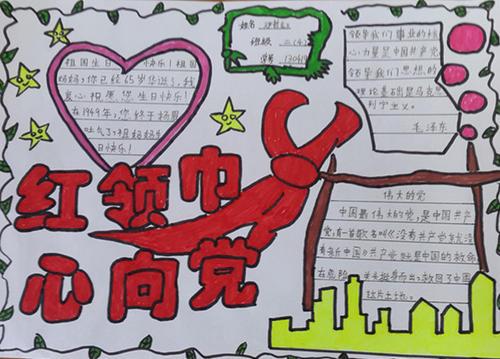 祖国生日快乐!祖国
妈妈,您已经65岁华诞了,我
衷心祝愿您生日快乐!
在1949年,您终于扬眉
吐气了,祖妈妈
日快乐!
姓名
班级 二(4)
学号
领导我们事业的核
心力量是中国共产党
领导我们思想的
理论基础是马克思
列宁主义。
毛泽东
红领巾
心向党
伟大的党
中国最伟大的党,是中国共产
党,有一首歌名叫《没有共产党就没
有新中国》共产党就是中国的救命
在危险 关头挺身而出,救回了中国
这片土地。